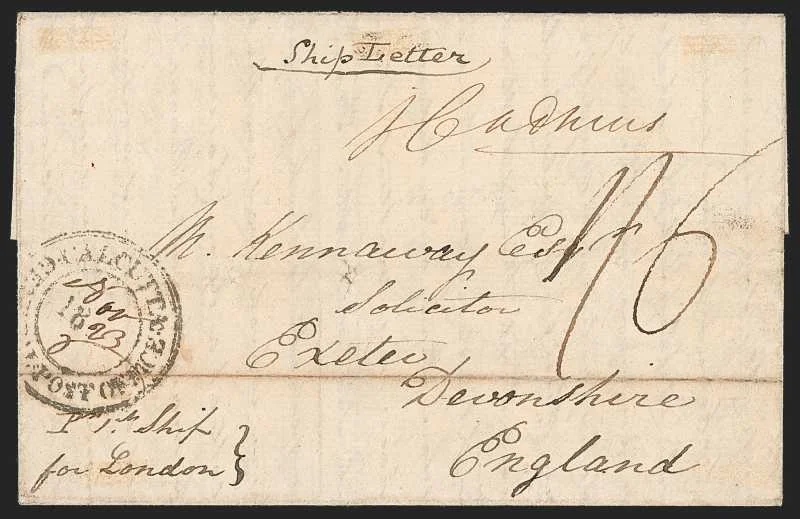 Ship Letter
1/6
M. Kennaway Esqr
Solicitor
Exeter
Devonshire
England
CALCUTTA
POST OFFICE
Nov
18 23
Pr. 1st. Ship
for London